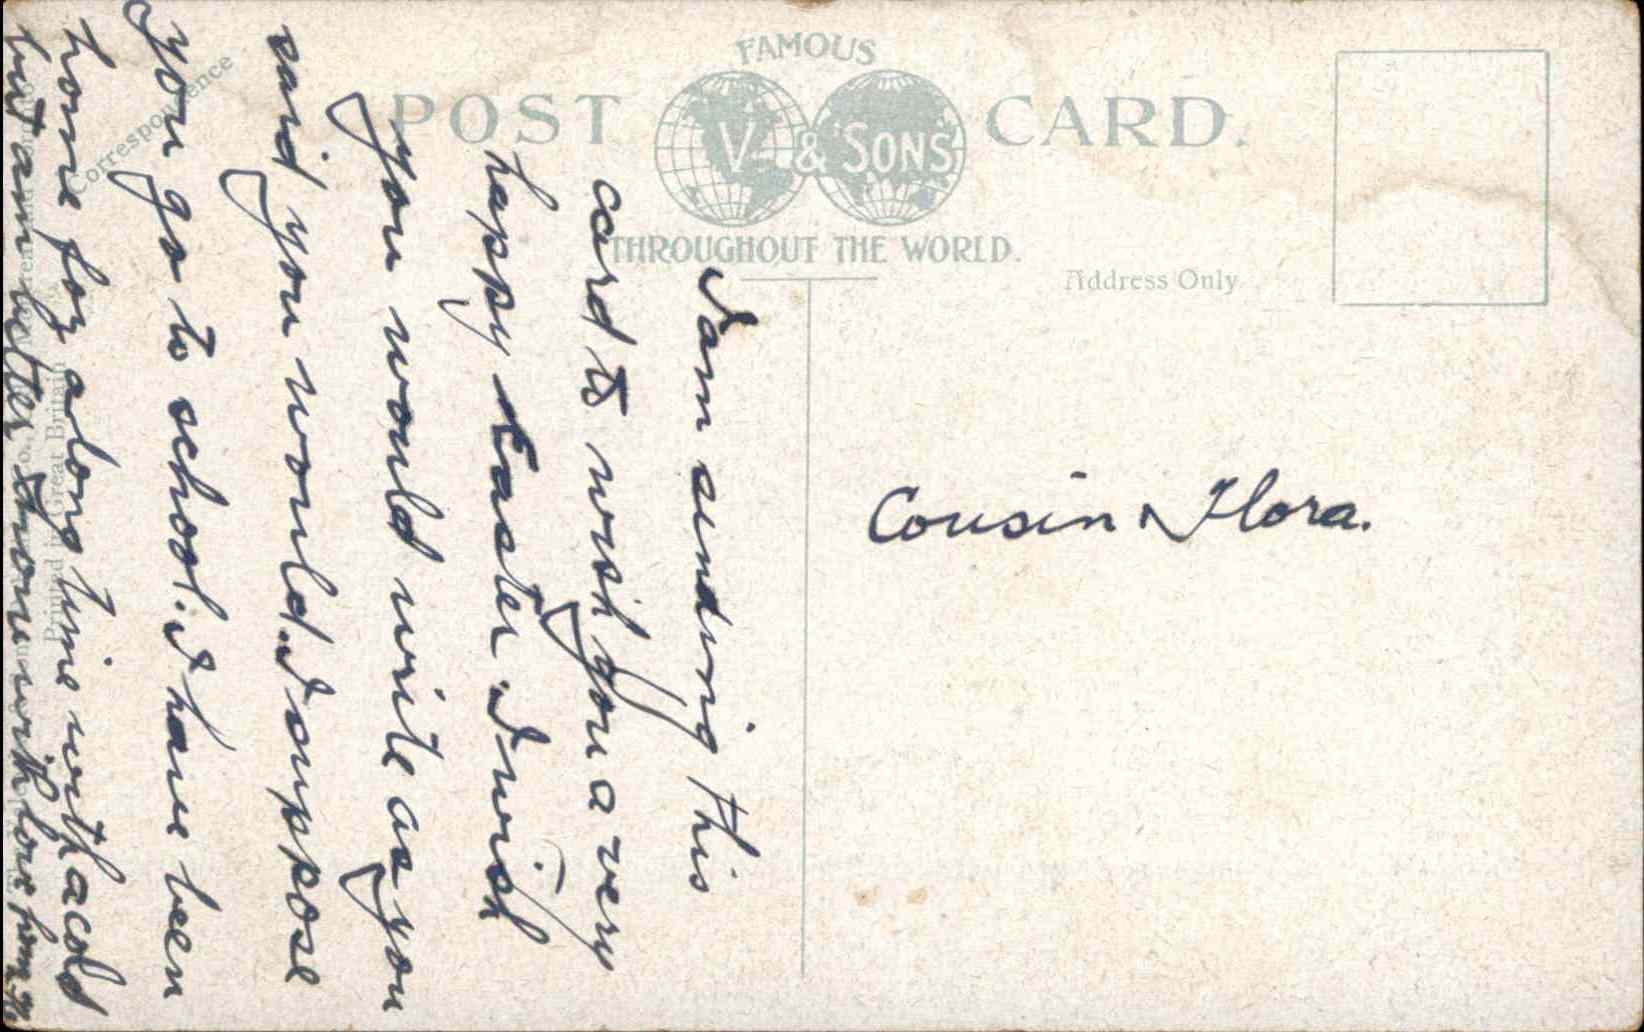 FAMOUS
POST CARD.
V & SONS
THROUGHOUT THE WORLD.
Correspondence
Address Only
Printed in Great Britain
I am sending this
card to wish you a very
happy Easter. I wish
you would write as you
said you would. I suppose
you go to school. I have been
home for a long time with a cold
but am better now with love from
Cousin Flora.